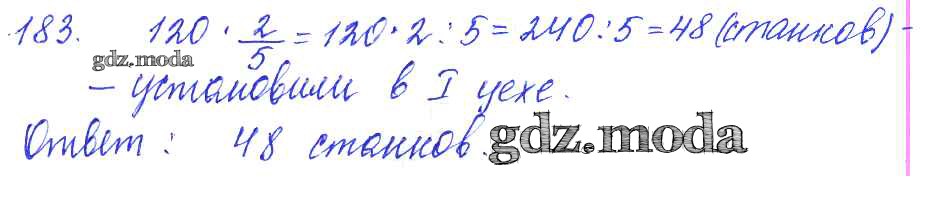 183. 120 · 2/5 = 120 · 2 : 5 = 240 : 5 = 48 (станков) -
gdz.moda
- установили в I цехе.
Ответ : 48 станков.
gdz.moda